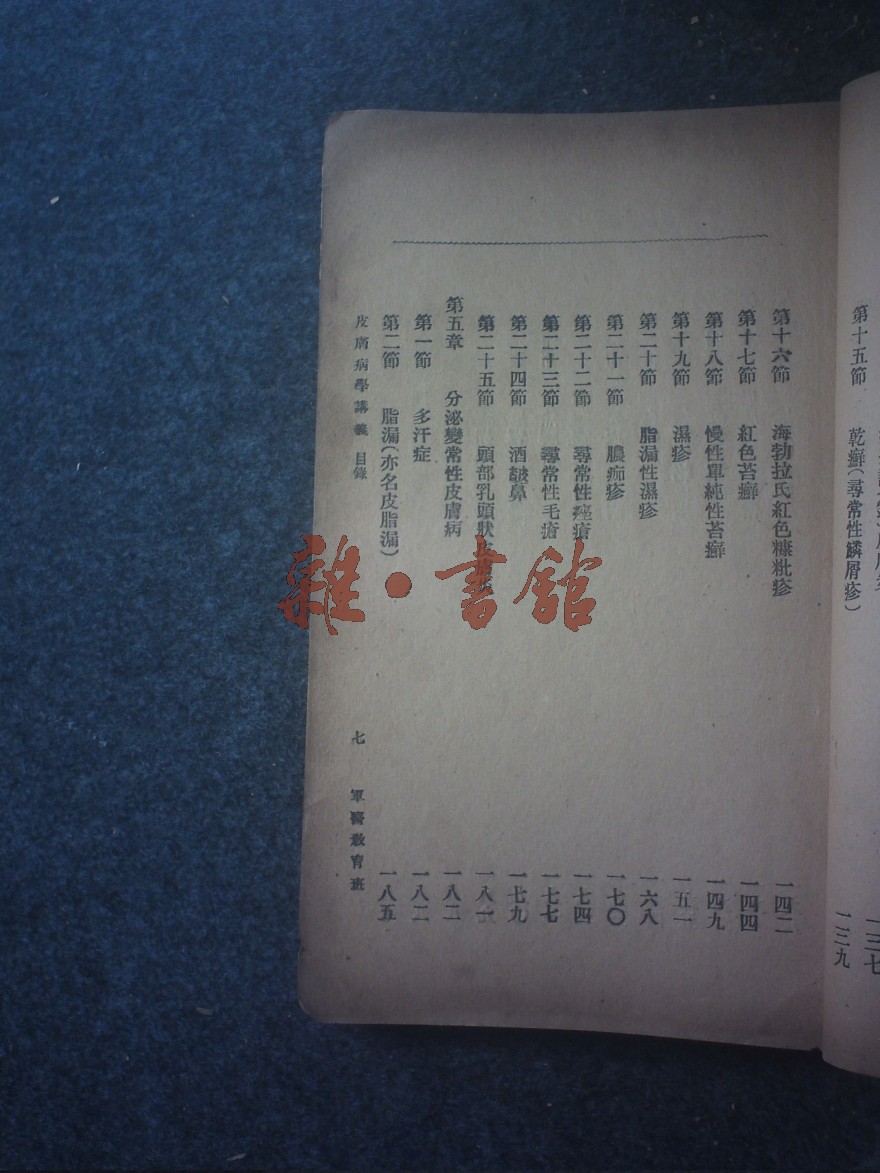 第十五節 乾癬(尋常性鱗屑疹) 一三九
第十六節 海勃拉氏紅色糠粃疹 一四二
第十七節 紅色苔癬 一四四
第十八節 慢性單純性苔癬 一四九
第十九節 濕疹 一五一
第二十節 脂漏性濕疹 一六八
第二十一節 膿痂疹 一七〇
第二十二節 尋常性痤瘡 一七四
第二十三節 尋常性毛瘡 一七七
第二十四節 酒皶鼻 一七九
第二十五節 頭部乳頭狀 一八一
第五章 分泌變常性皮膚病 一八二
第一節 多汗症 一八二
第二節 脂漏(亦名皮脂漏) 一八五
皮膚病學講義 目錄 七 軍醫敎育班
雜·書館